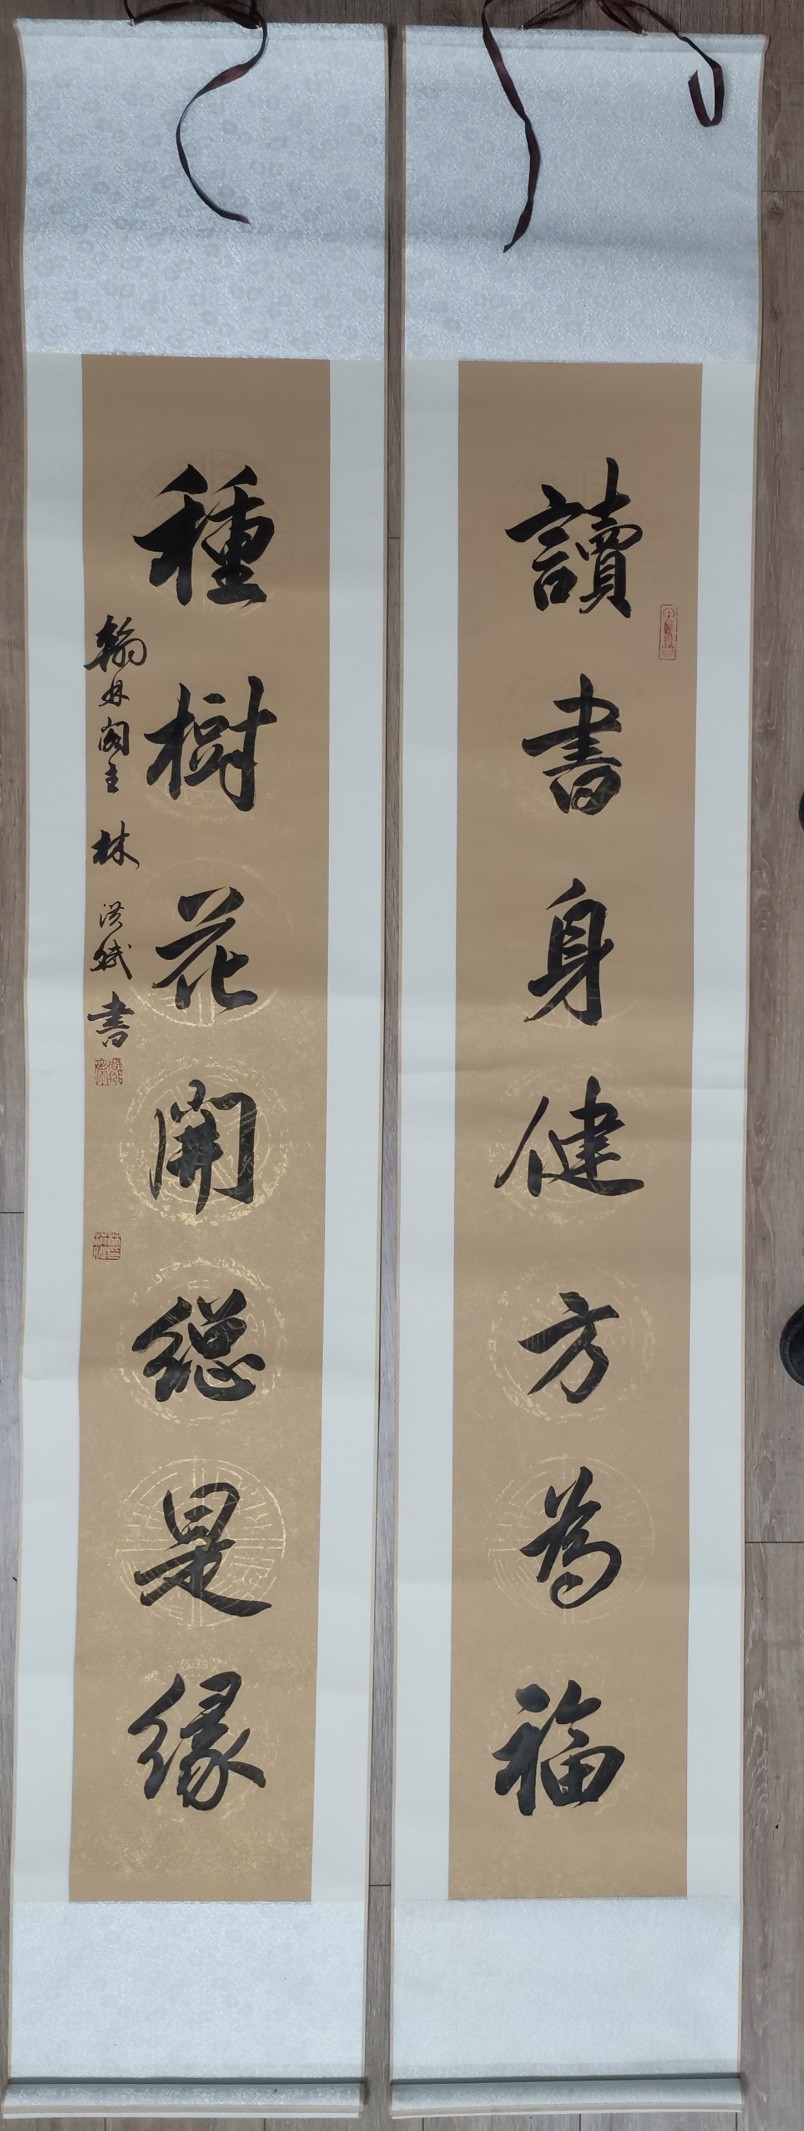 讀書身健方為福
種樹花開總是緣
翰林閣主 林洪斌書